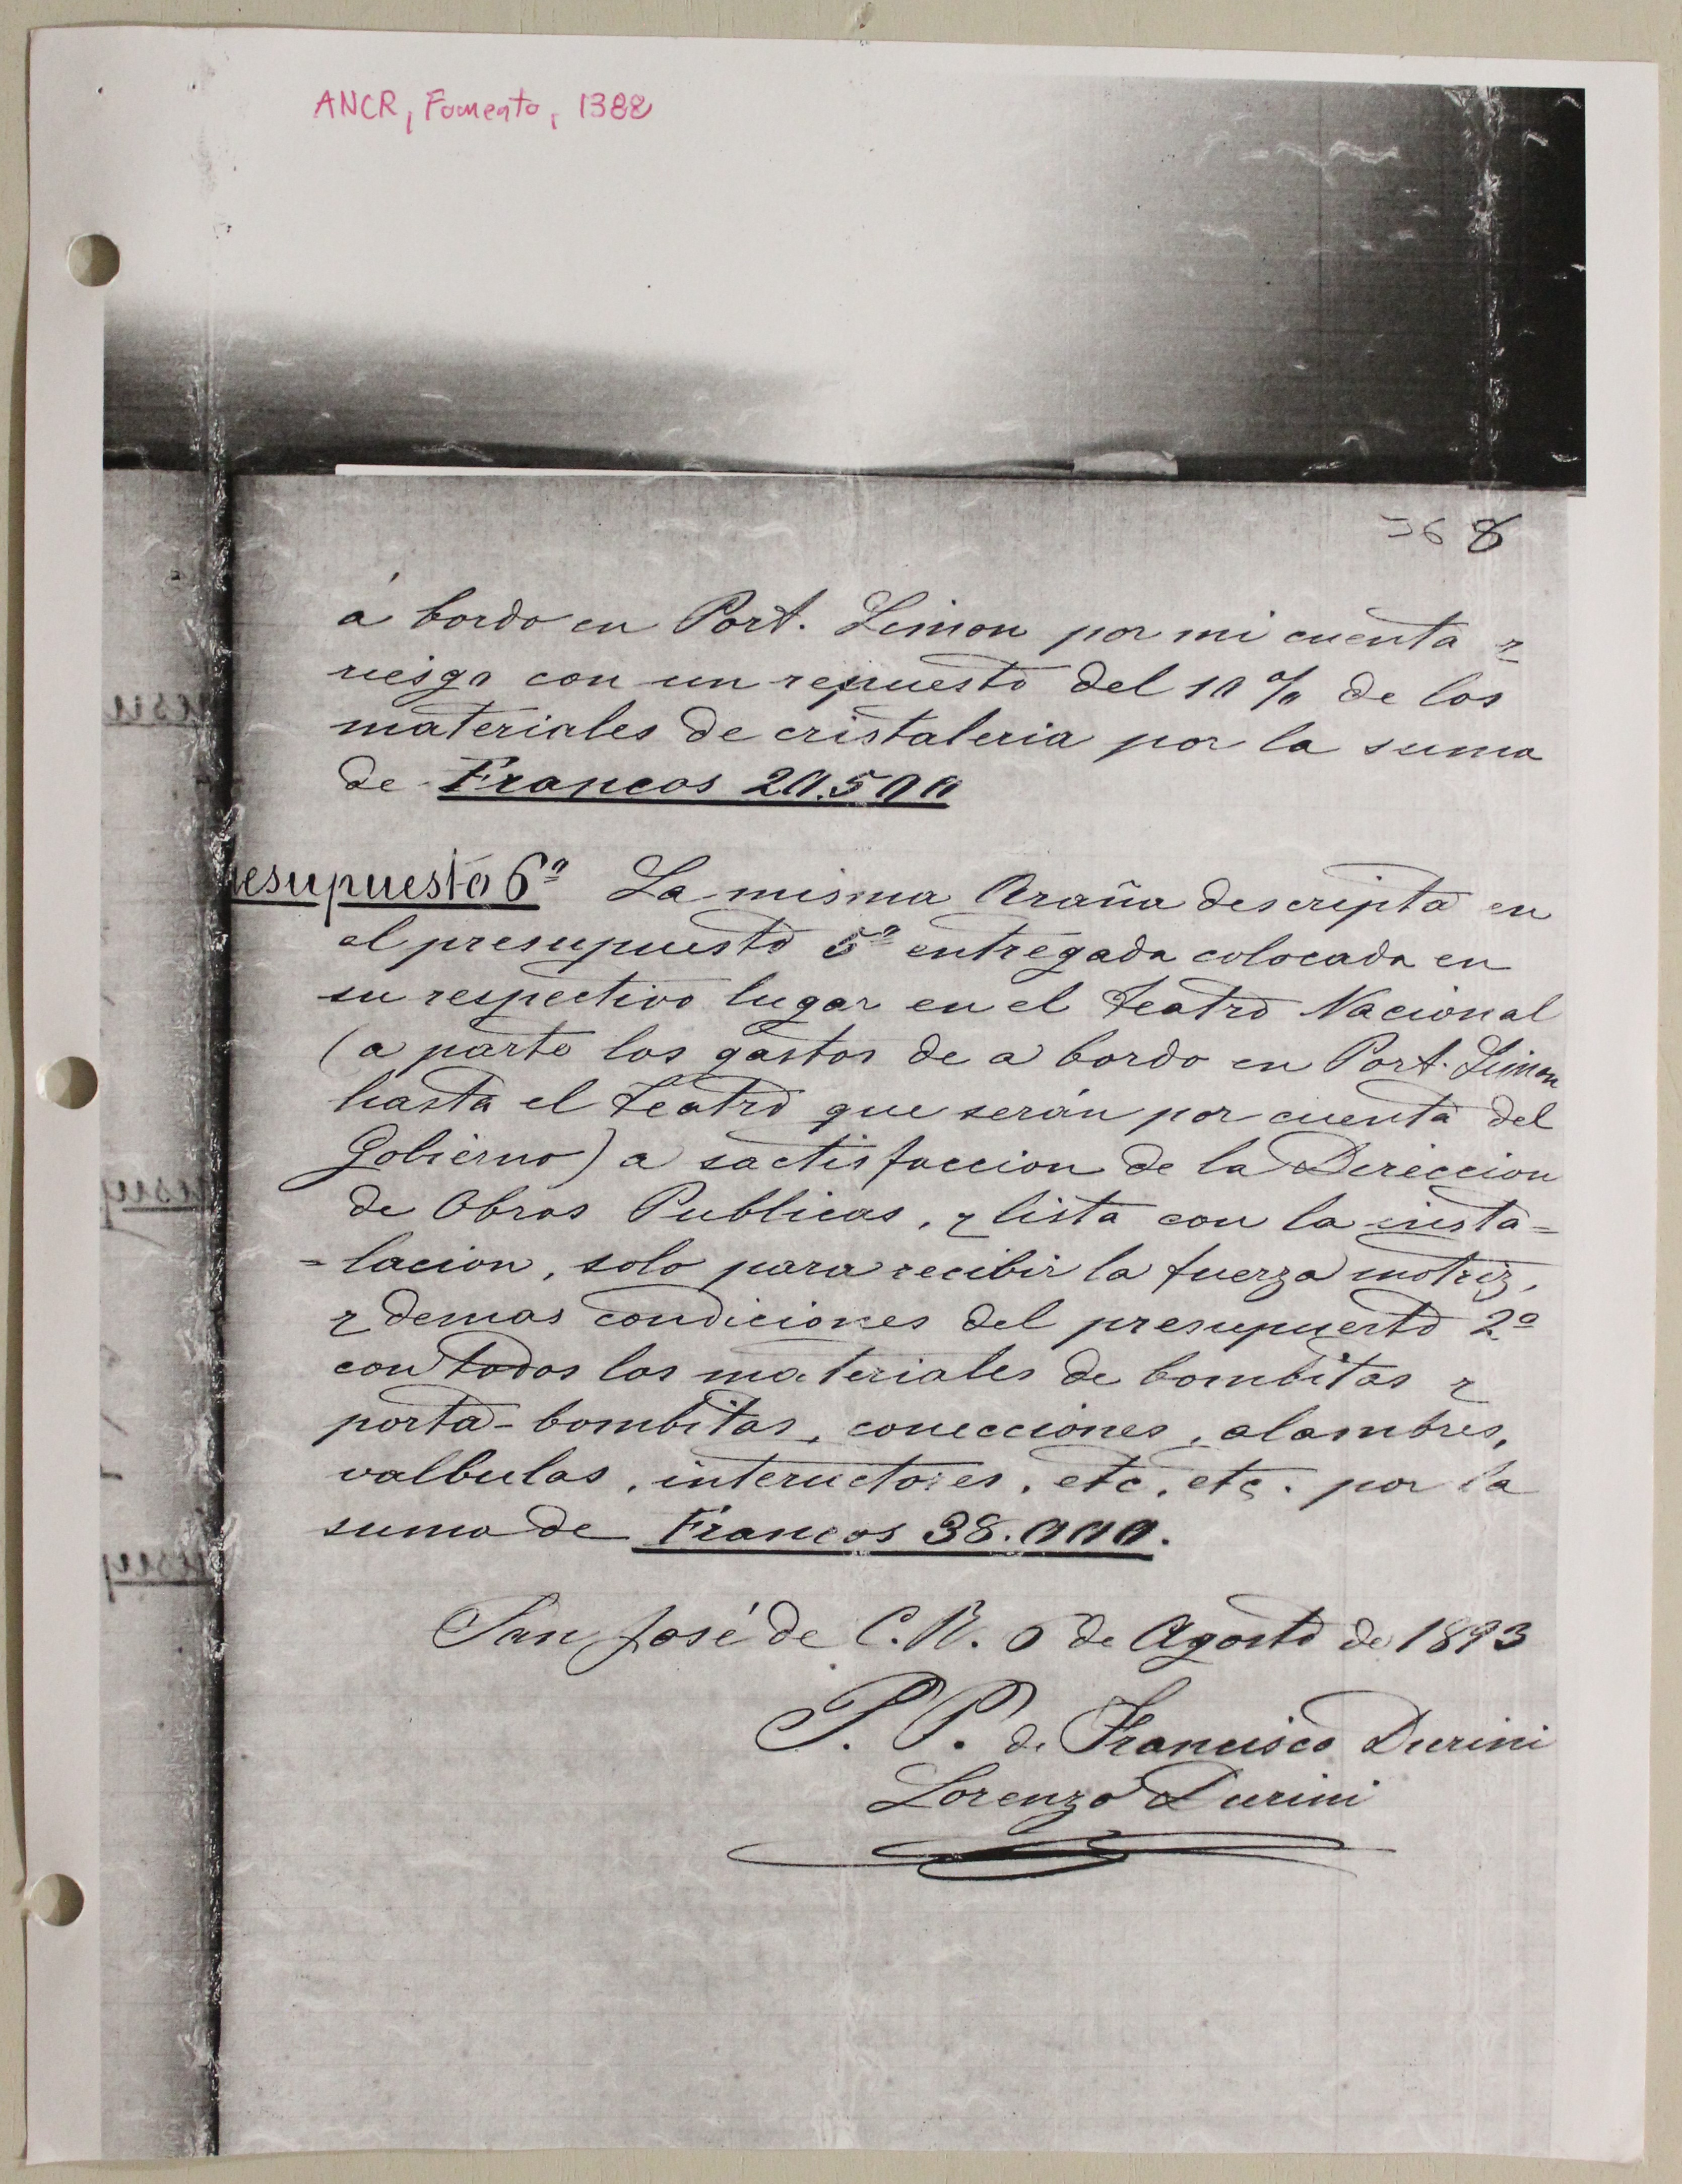 ANCR, Fomento, 1388
368
á bordo en Port. Limon por mi cuenta y
riesgo con un repuesto del 10 % de los
materiales de cristaleria por la suma
de Francos 20.500
esupuesto 6º La misma Araña descripta en
el presupuesto 5º entregada colocada en
su respectivo lugar en el Teatro Nacional
(a parte los gastos de a bordo en Port. Limon
hasta el Teatro que serán por cuenta del
Gobierno) a sactisfaccion de la Direccion
de Obras Publicas, y lista con la insta=
=lacion, solo para recibir la fuerza motriz,
y demas condiciones del presupuesto 2º
con todos los materiales de bombitas y
porta-bombitas, conecciones, alambres,
valbulas, inteructores, etc, etc. por la
suma de Francos 38.000.
San José de C.R. 6 de Agosto de 1893
P. P. de Francisco Durini
Lorenzo Durini